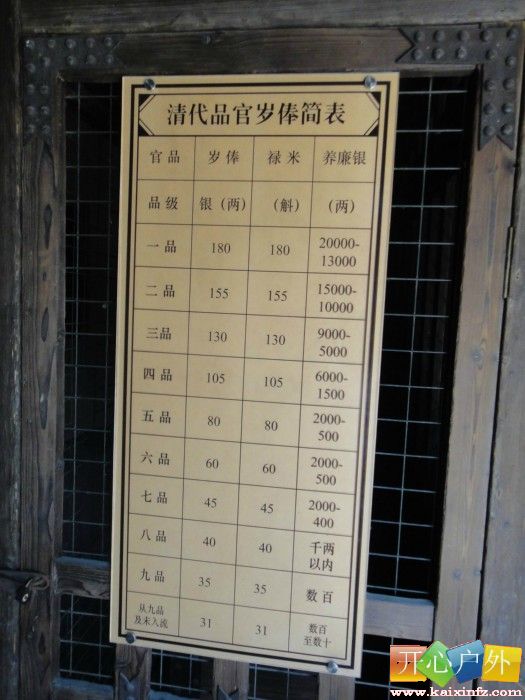 清代品官岁俸简表
官品 岁俸 禄米 养廉银
品级 银（两） （斛） （两）
一品 180 180 20000-13000
二品 155 155 15000-10000
三品 130 130 9000-5000
四品 105 105 6000-1500
五品 80 80 2000-500
六品 60 60 2000-500
七品 45 45 2000-400
八品 40 40 千两以内
九品 35 35 数百
从九品及未入流 31 31 数百至数十
开心户外
www.kaixinfz.com